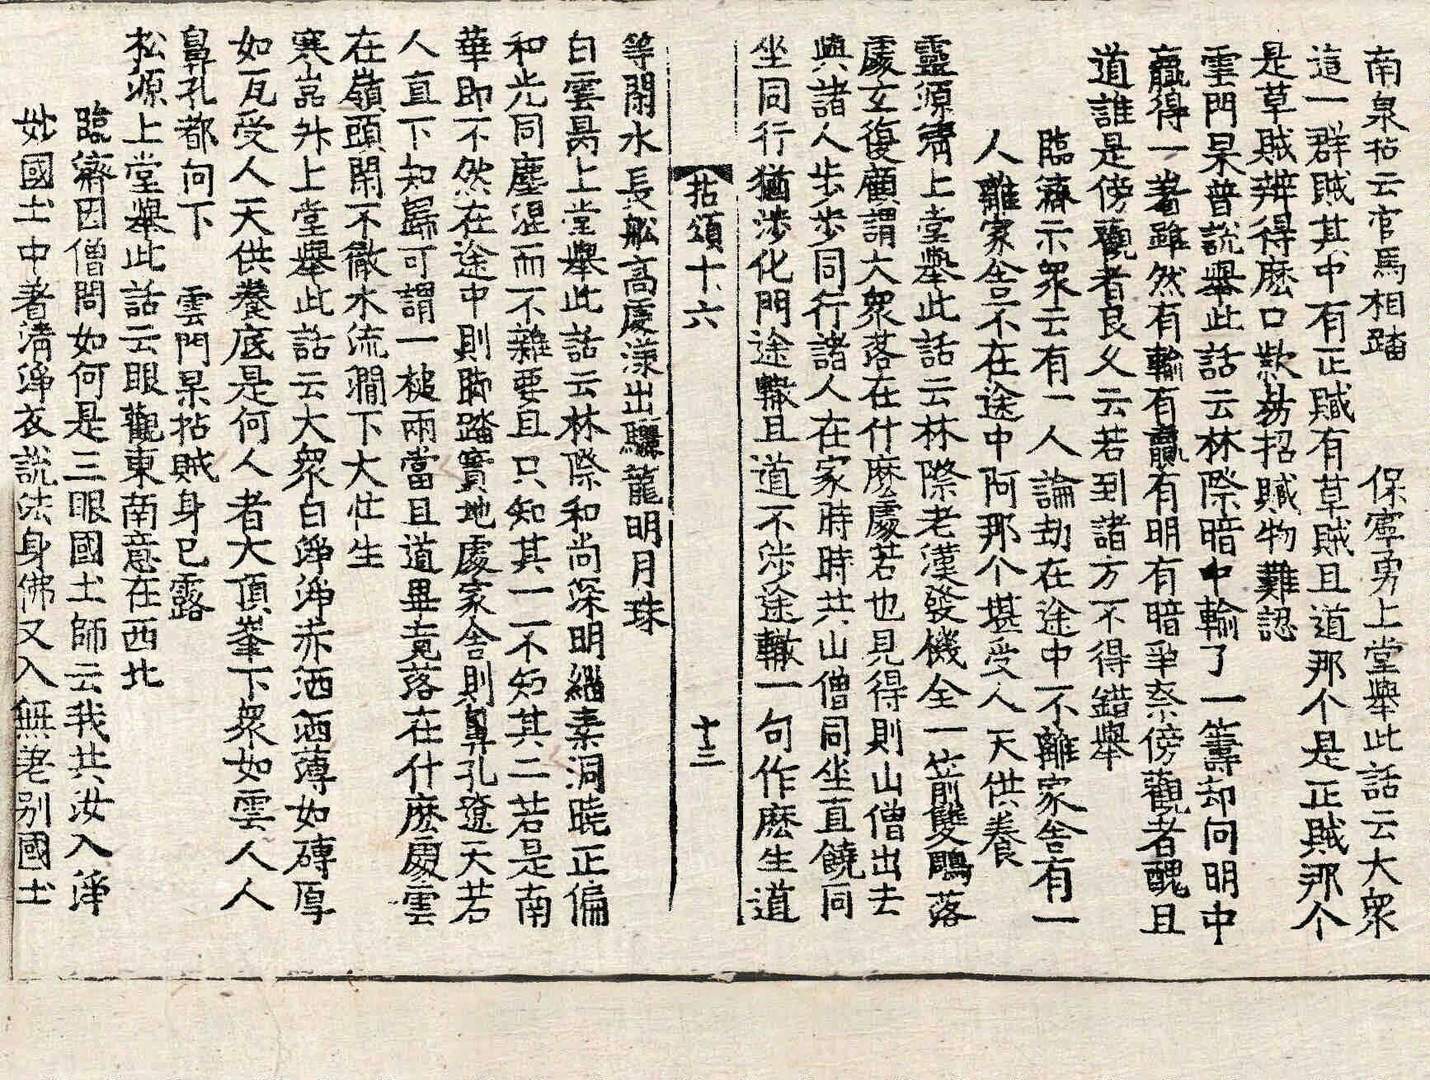 南泉拈云官馬相踏　保寧勇上堂舉此話云大衆
這一群賊其中有正賊有草賊且道那个是正賊那个
是草賊辨得麽口欵易招贓物難認
雲門杲普說舉此話云林際暗中輸了一籌却向明中
贏得一著雖然有輸有贏有明有暗爭柰傍觀者醜且
道誰是傍觀者良久云若到諸方不得錯舉
臨濟示衆云有一人論劫在途中不離家舍有一
人離家舍不在途中阿那个堪受人天供養
靈源淸上堂舉此話云林際老漢發機全一箭雙鵰落
處玄復顧謂大衆落在什麽處若也見得則山僧出去
與諸人步步同行諸人在家時時共山僧同坐直饒同
坐同行猶涉化門途轍且道不涉途轍一句作麽生道
拈頌十六　十三
等閑水長舩高處漾出驪龍明月珠
白雲昺上堂舉此話云林際和尚深明緇素洞曉正偏
和光同塵混而不雜要且只知其一不知其二若是南
華即不然在途中則脚踏實地處家舍則鼻孔遼天若
人直下知歸可謂一槌兩當且道畢竟落在什麽處雲
在嶺頭閑不徹水流澗下大忙生
寒嵓升上堂舉此話云大衆白淨淨赤洒洒薄如磚厚
如瓦受人天供養底是何人者大頂峯下衆如雲人人
鼻孔都向下　雲門杲拈賊身已露
松源上堂舉此話云眼觀東南意在西北
臨濟因僧問如何是三眼國土師云我共汝入淨
妙國土中著淸淨衣說法身佛又入無差別國土